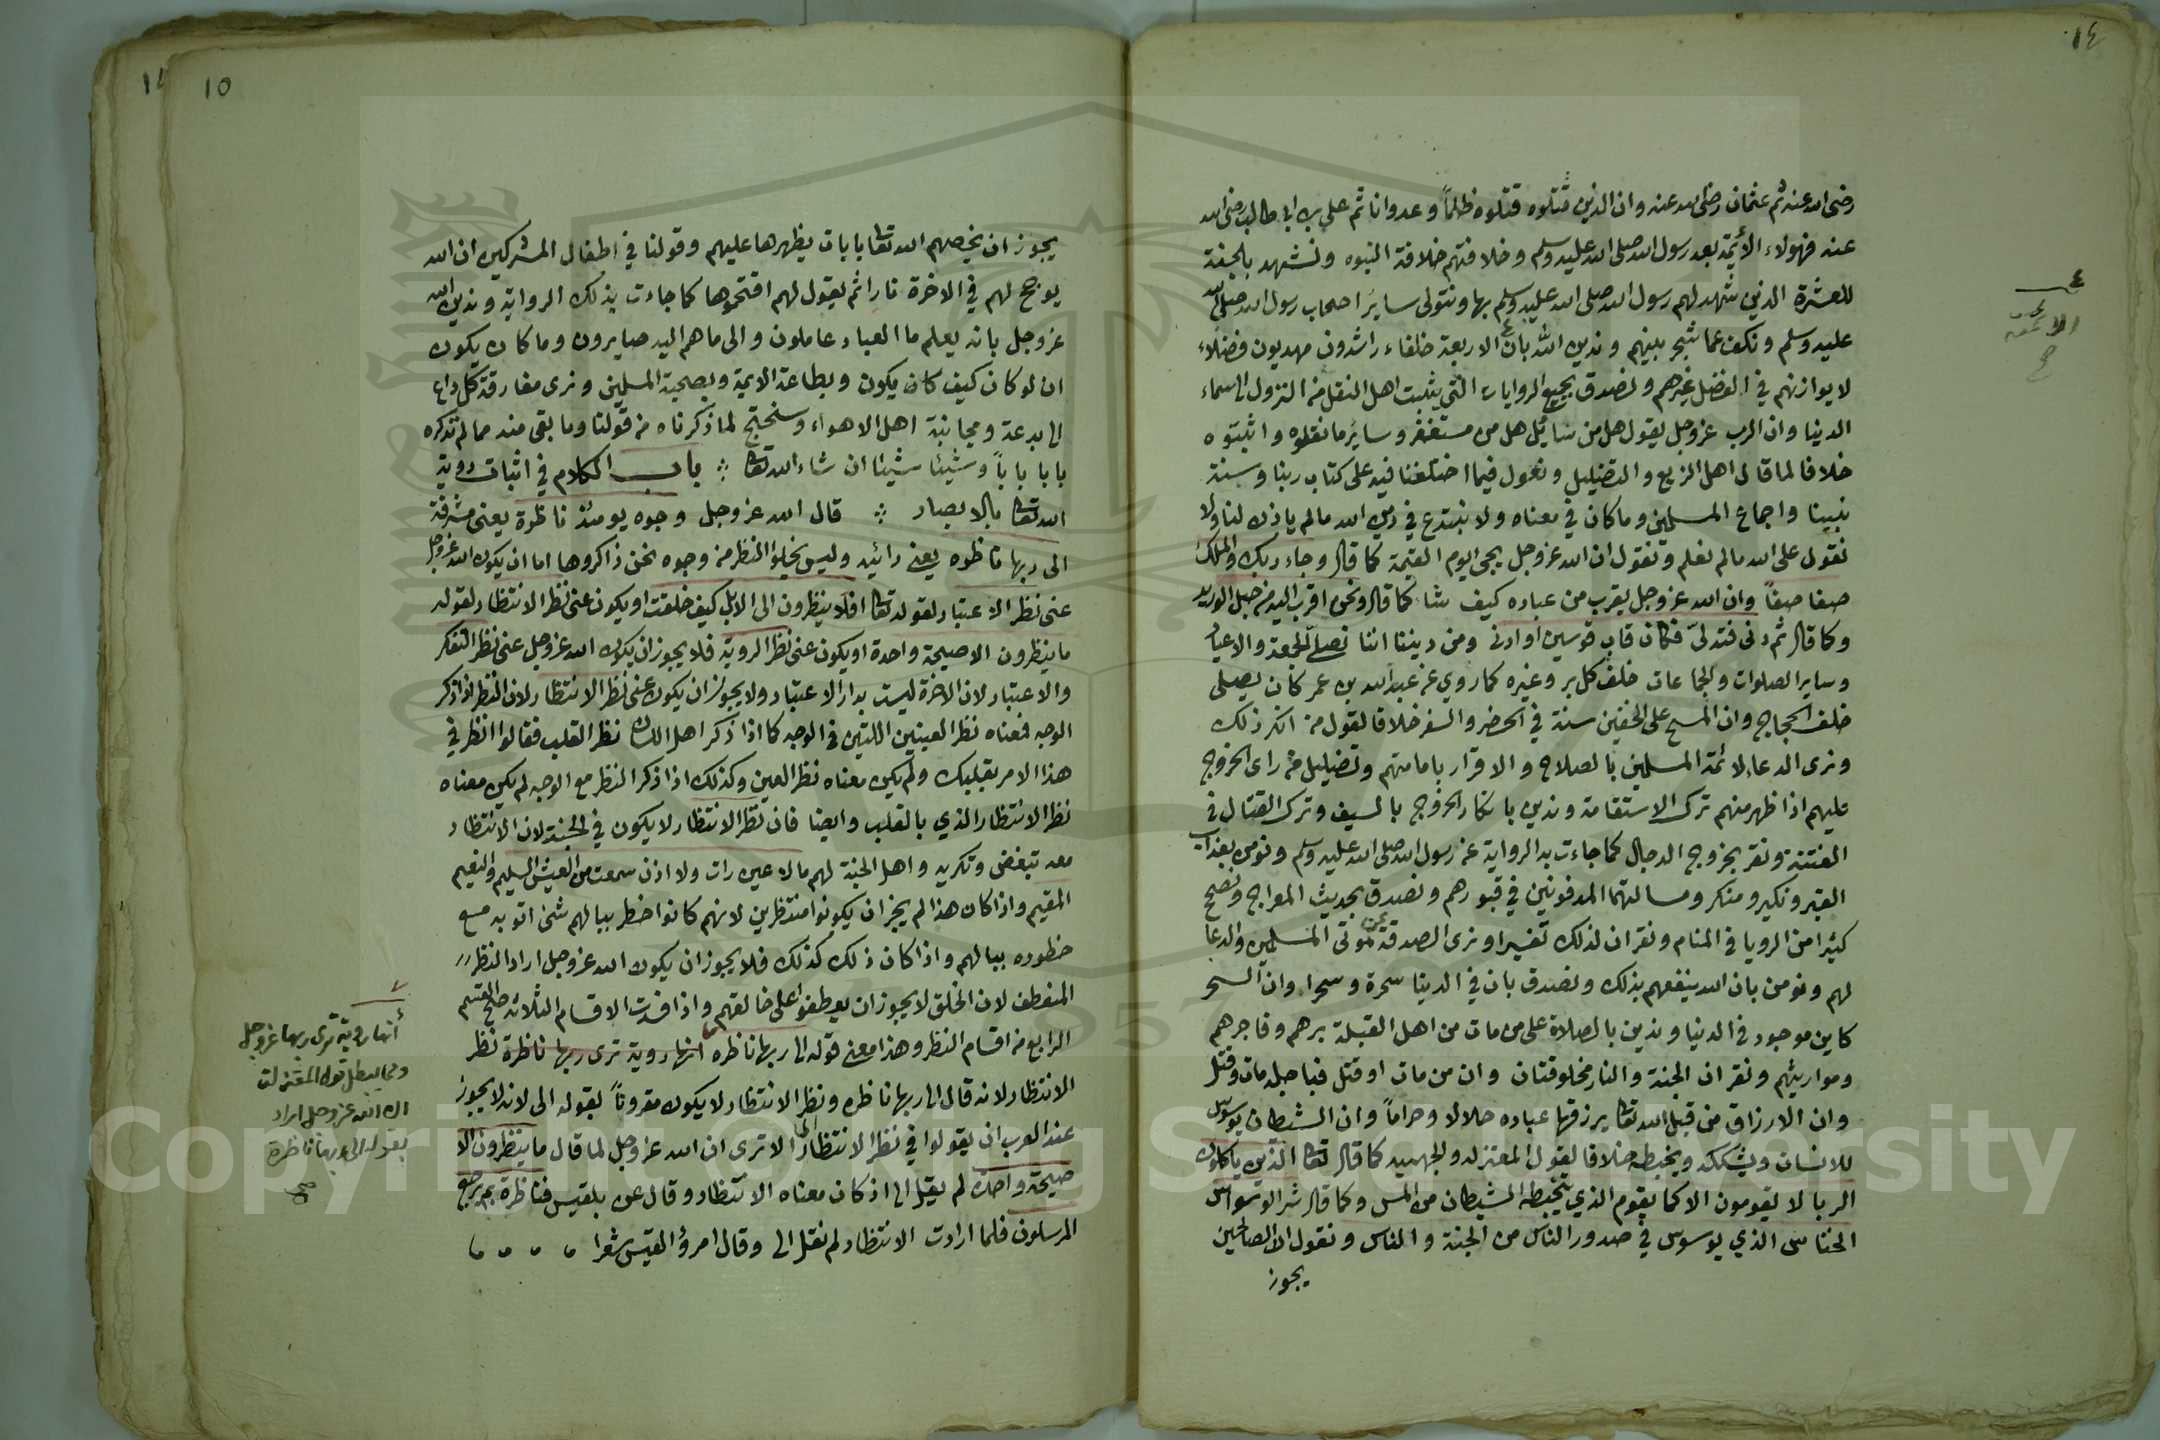 ١٤
رضى الله عنه ثم عثمان رضى الله عنه وان الذين قتلوه قتلوه ظلماً وعدوانا ثم على بن ابى طالب رضى الله
عنه فهولاء الأيمة بعد رسول الله صلى الله عليه وسلم وخلافتهم خلافة النبوه ونشهد بالجنة
للعشرة الذين شهد لهم رسول الله صلى الله عليه وسلم بها ونتولى ساير اصحاب رسول الله صلى الله
عليه وسلم ونكف عما شجر بينهم وندين الله بان الاربعة خلفاء راشدون مهديون فضلاء
لا يوازنهم في الفضل غيرهم ونصدق بجميع الروايات التي يثبت اهل النقل من النزول الى سماء
الدنيا وان الرب عز وجل يقول هل من سائل هل من مستغفر وساير ما نقلوه واثبتوه
خلافا لما قال اهل الزيغ والتضليل ونعول فيما اختلفنا فيه على كتاب ربنا وسنة
نبينا واجماع المسلمين وما كان في معناه ولا نبتدع في دين الله ما لم ياذن لنا ولا
نقول على الله ما لم نعلم ونقول ان الله عز وجل يجى يوم القيمة كما قال وجاء ربك والملك
صفا صفاً وان الله عز وجل يقرب من عباده كيف شا كما قال ونحن اقرب اليه من حبل الوريد
وكما قال ثم دنى فتدلى فكان قاب قوسين او ادنى ومن ديننا اننا نصلى الجمعة والاعياد
وساير الصلوات والجماعات خلف كل بر وغيره كما روي عن عبد الله بن عمر كان يصلى
خلف الحجاج وان المسح على الخفين سنة في الحضر والسفر خلافا لقول من انكر ذلك
ونرى الدعاء لائمة المسلمين بالصلاح والاقرار بامامتهم وتضليل من راى الخروج
عليهم اذا ظهر منهم ترك الاستقامة وندين بانكار الخروج بالسيف وترك القتال في
الفتنة ونقر بخروج الدجال كما جاءت به الرواية عن رسول الله صلى الله عليه وسلم ونومن بعذاب
القبر ونكير ومنكر ومسالتهما المدفونين في قبورهم ونصدق بحديث المعراج ونصحح
كثيرا من الرويا في المنام ونقر ان لذلك تفسيرا ونرى الصدقة عن موتى المسلمين والدعا
لهم ونومن بان الله ينفعهم بذلك ونصدق بان في الدنيا سحرة وسحرا وان السحر
كاين موجود في الدنيا وندين بالصلاة على من مات من اهل القبلة برهم وفاجرهم
ومواريثهم ونقر ان الجنة والنار مخلوقتان وان من مات او قتل فباجله مات وقتل
وان الارزاق من قبل الله تعالى يرزقها عباده حلالا وحراماً وان الشيطان يوسوس
للانسان ويشككه ويخبطه خلافا لقول المعتزله والجهميه كما قال تعالى الذين ياكلون
الربا لا يقومون الا كما يقوم الذي يتخبطه الشيطان من المس وكما قال من شر الوسواس
الخناس الذي يوسوس في صدور الناس من الجنة والناس ونقول ان الصالحين
يجوز
١٥
يجوز ان يخصهم الله تعالى بايات يظهرها عليهم وقولنا في اطفال المشركين ان الله
يوجج لهم في الاخرة نارا ثم يقول لهم اقتحموها كما جاءت بذلك الرواية وندين الله
عز وجل بانه يعلم ما العباد عاملون والى ما هم اليه صايرون وما كان يكون
ان لو كان كيف كان يكون وبطاعة الايمة وبصحبة المسلمين ونرى مفارقة كل داع
الى بدعة ومجانبة اهل الاهواء وسنحتج لما ذكرناه من قولنا وما بقى منه مما لم نذكره
بابا باباً وشيئا شيئا ان شاء الله تعالى باب الكلام في اثبات روية
الله تعالى بالابصار قال الله عز وجل وجوه يومئذ ناظرة يعنى مشرقة
الى ربها ناظره يعنى رائيه وليس يخلو النظر من وجوه نحن ذاكروها اما ان يكون الله عز وجل
عنى نظر الاعتبار لقوله تعالى افلا ينظرون الى الابل كيف خلقت او يكون عنى نظر الانتظار لقوله
ما ينظرون الا صيحة واحدة او يكون عنى نظر الروية فلا يجوز ان يكون الله عز وجل عنى نظر التفكر
والاعتبار لان الاخرة ليست بدار الاعتبار ولا يجوز ان يكون عنى نظر الانتظار لان النظر اذا ذكر
الوجه فمعناه نظر العينين اللتين في الوجه كما اذا ذكر اهل اللسان نظر القلب فقالوا انظر في
هذا الامر بقلبك ولم يكن معناه نظر العين وكذلك اذا ذكر النظر مع الوجه لم يكن معناه
نظر الانتظار الذي بالقلب وايضا فان نظر الانتظار لا يكون في الجنة لان الانتظار
معه تبغض وتكريه واهل الجنة لهم ما لا عين رات ولا اذن سمعت من العيش السليم والنعيم
المقيم واذا كان هذا لم يجز ان يكونوا منتظرين لانهم كانوا خطر ببالهم شئ اتو به مع
خطوره ببالهم واذا كان ذلك كذلك فلا يجوز ان يكون الله عز وجل اراد النظر
المنعطف لان الخلق لا يجوز ان يعطفوا على خالقهم واذا فسدت الاقسام الثلاثة صح القسم
الرابع من اقسام النظر وهذا معنى قوله الى ربها ناظره انها روية ترى ربها ناظرة نظر
الانتظار لانه قال الى ربها ناظره ونظر الانتظار لا يكون مقروناً بقوله الى لانه لا يجوز
عند العرب ان يقولوا في نظر الانتظار الى الا ترى ان الله عز وجل لما قال ما ينظرون الا
صيحة واحدة لم يقل الى اذ كان معناه الانتظار وقال عن بلقيس فناظرة بم يرجع
المرسلون فلما ارادت الانتظار لم تقل الى وقال امرؤ القيس شعرا
أنها روية ترى ربها عز وجل
ومما يبطل قول المعتزلة
ان الله عز وجل اراد
بقوله الى ربها ناظرة
صح
الائمة
١٤
Copyright © King Saud University
1957